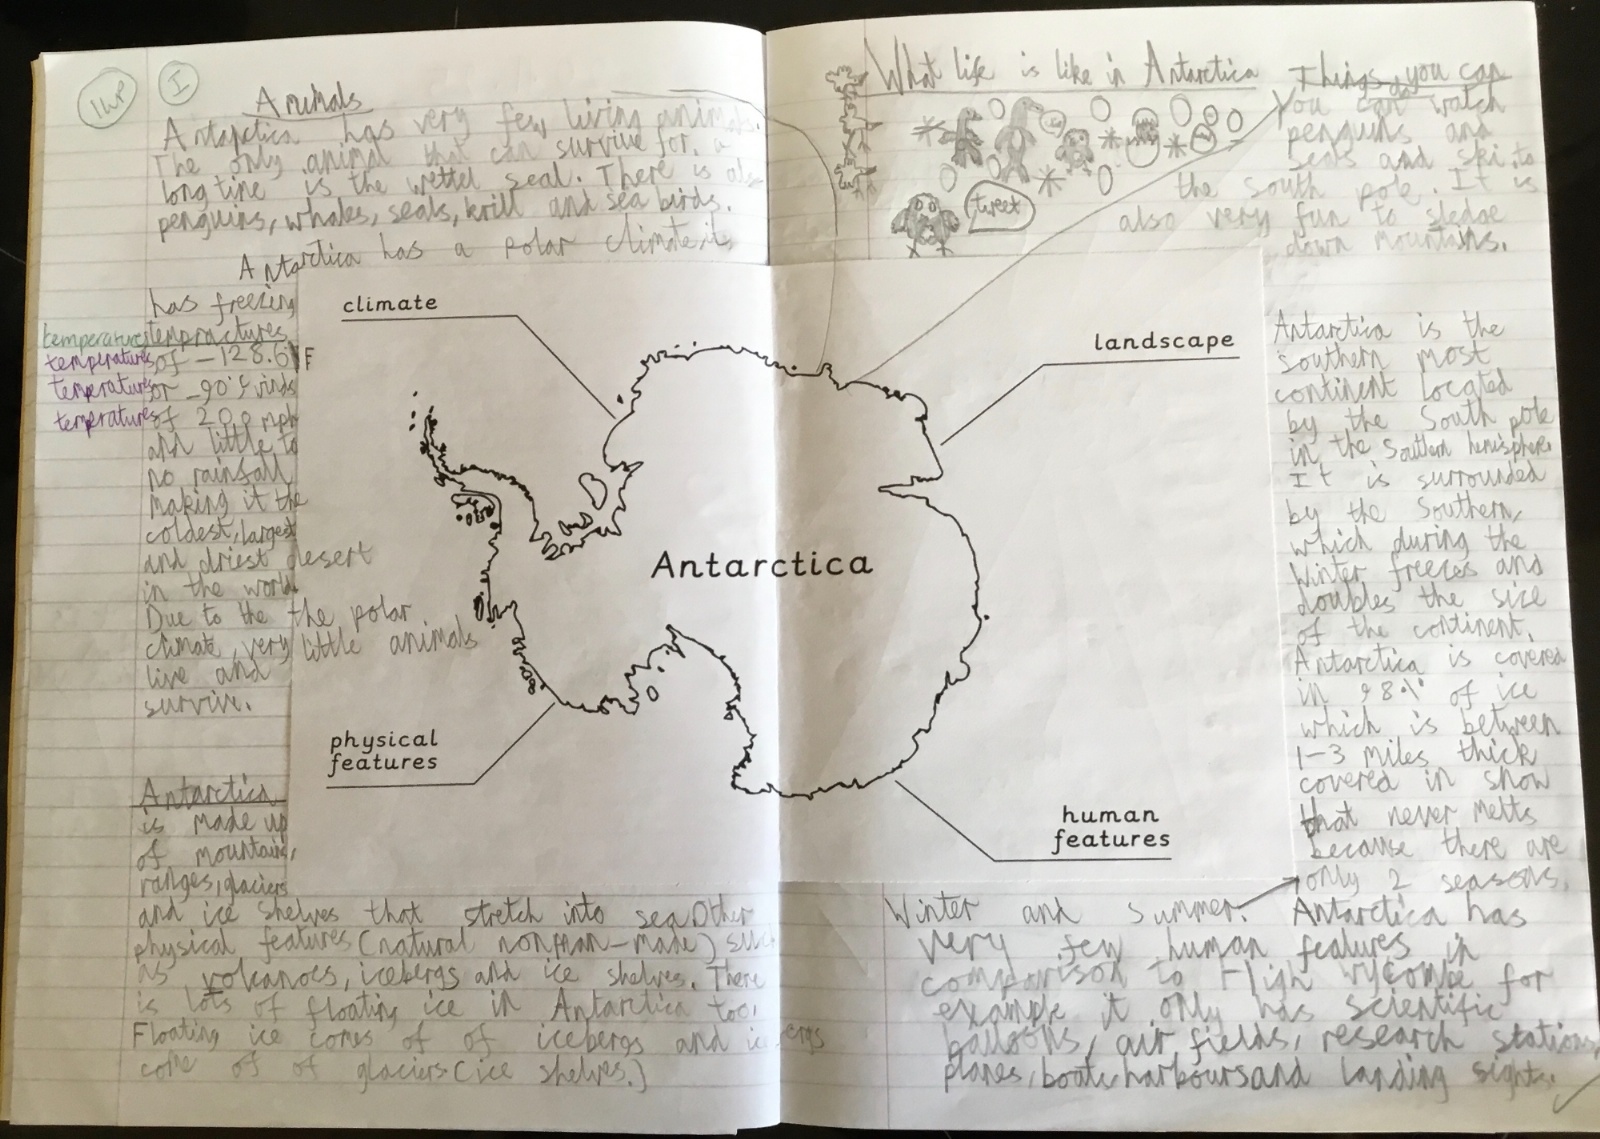 1WP
I
Animals
Antarctica has very few living animals.
The only animal that can survive for a
long time is the wettel seal. There is also
penguins, whales, seals, krill and sea birds.
Antarctica has a polar climate, it
has freezing
temperatures tempractures
temperatures of -128.6°F
temperatures or -90°F winds
temperatures of 200 mph
and little to
no rainfall
making it the
coldest, largest
and driest desert
in the world
Due to the the polar
climate, very little animals
live and
survive.
climate
physical
features
Antarctica
is made up
of mountain,
ranges, glaciers
and ice shelves that stretch into sea Other
physical features (natural non man-made) such
as volcanoes, icebergs and ice shelves. There
is lots of floating ice in Antarctica too,
Floating ice comes of of icebergs and icebergs
come of of glaciers (ice shelves.)
Antarctica
What life is like in Antarctica
tweet
Things you can do
You can watch
penguins and
seals and ski to
the south pole. It is
also very fun to sledge
down mountains.
landscape
Antarctica is the
southern most
continent located
by the South pole
in the Southern hemisphere
It is surrounded
by the Southern,
which during the
Winter freezes and
doubles the size
of the continent.
Antarctica is covered
in 98% of ice
which is between
1-3 miles thick
covered in snow
that never melts
because there are
only 2 seasons,
Winter and summer.
human
features
Antarctica has
very few human features in
comparison to High wycombe for
example it only has scientific
balloons, air fields, research stations,
planes, boats harbours and landing sights.